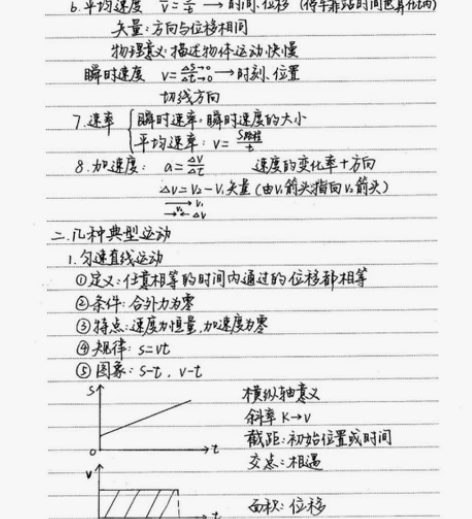 6.平均速度 v̄=s/t → 时间.位移 (停车靠站时间也算在内)
矢量:方向与位移相同
物理意义:描述物体运动快慢
瞬时速度 v=Δs→0/Δt→0 → 时刻.位置
切线方向
7.速率 { 瞬时速率:瞬时速度的大小
平均速率: v=S路程/t
8.加速度: a=Δv/Δt 速度的变化率+方向
Δv=v₂-v₁ 矢量(由v₁箭头指向v₂箭头)
v₁
v₂ Δv
二.几种典型运动
1.匀速直线运动
①定义:任意相等的时间内通过的位移都相等
②条件:合外力为零
③特点:速度为恒量,加速度为零
④规律: s=vt
⑤图象: s-t . v-t
S
横纵轴意义
斜率 K→v
截距:初始位置或时间
交点:相遇
0 t
V
面积:位移
t